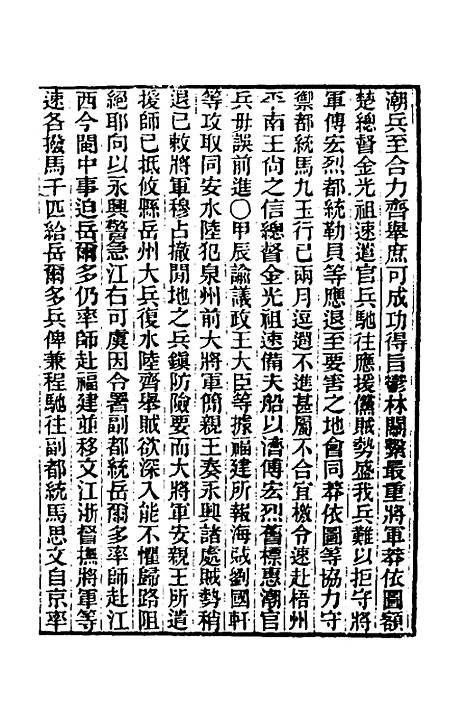 潮兵至合力齊舉庶可成功得旨鬱林關繫最重將軍莽依圖額
楚總督金光祖速遣官兵馳往應援儻賊勢盛我兵難以拒守將
軍傅宏烈都統勒貝等應退至要害之地會同莽依圖等協力守
禦都統馬九玉行已兩月逗遛不進甚屬不合宜檄令速赴梧州
平南王尙之信總督金光祖速備夫船以濟傅宏烈舊標惠潮官
兵毋誤前進○甲辰諭議政王大臣等據福建所報海㓂劉國軒
等攻取同安水陸犯泉州前大將軍簡親王奏永興諸處賊勢稍
退已敕將軍穆占撤閒地之兵鎭防險要而大將軍安親王所遣
援師已抵攸縣岳州大兵復水陸齊舉賊欲深入能不懼歸路阻
絕耶向以永興警急江右可虞因令署副都統岳爾多率師赴江
西今閩中事迫岳爾多仍率師赴福建並移文江浙督撫將軍等
速各撥馬千匹給岳爾多兵俾兼程馳往副都統馬思文自京率